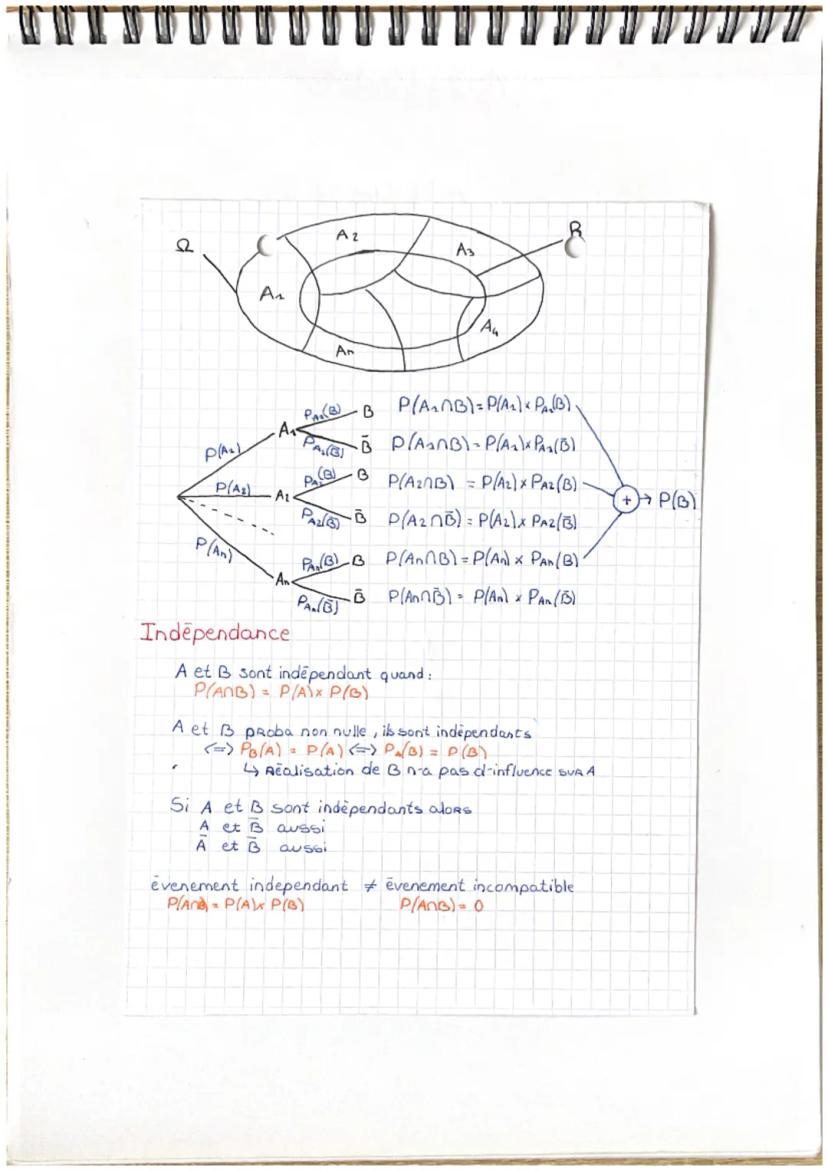 Ω
A2
A3
B
A1
A4
An
P(A1)
A1
PA1(B)
B
P(A1∩B)=P(A1)×PA1(B)
PA1(B̄)
B̄
P(A1∩B)=P(A1)×PA1(B̄)
P(A2)
A2
PA2(B)
B
P(A2∩B) = P(A2)×PA2(B)
PA2(B̄)
B̄
P(A2∩B̄)=P(A2)×PA2(B̄)
+ → P(B)
P(An)
An
PAn(B)
B
P(An∩B)=P(An)×PAn(B)
PAn(B̄)
B̄
P(An∩B̄)= P(An)×PAn(B̄)
Indépendance
A et B sont indépendant quand :
P(A∩B) = P(A)×P(B)
A et B proba non nulle, ils sont indépendants
<=> PB(A) = P(A) <=> PA(B) = P(B)
↳ Réalisation de B n'a pas d'influence sur A
Si A et B sont indépendants alors
A et B̄ aussi
Ā et B̄ aussi
évenement independant ≠ évenement incompatible
P(A∩B) = P(A)×P(B) P(A∩B) = 0